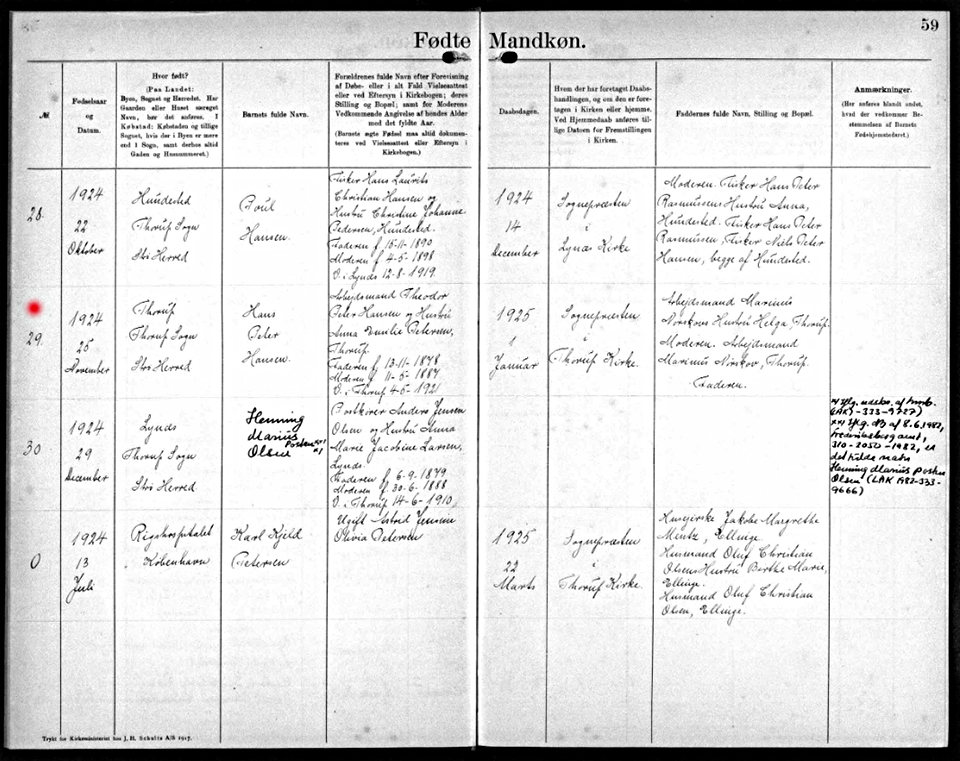 59
Fødte Mandkøn.
№
Fødselsaar
og
Datum.
Hvor født?
(Paa Landet:
Byen, Sognet og Herredet. Har
Gaarden eller Huset særeget
Navn, bør det anføres. I
Købstad: Købstaden og tillige
Sognet, hvis der i Byen er mere
end 1 Sogn, samt derhos altid
Gaden og Husnummeret.)
Barnets fulde Navn.
Forældrenes fulde Navn efter Forevisning
af Døbe- eller i alt Fald Vielsesattest
eller ved Eftersyn i Kirkebogen; deres
Stilling og Bopæl; samt for Moderens
Vedkommende Angivelse af hendes Alder
med det fyldte Aar.
(Barnets ægte Fødsel maa altid dokumen-
teres ved Vielsesattest eller Eftersyn i
Kirkebogen.)
Daabsdagen.
Hvem der har foretaget Daabs-
handlingen, og om den er fore-
taget i Kirken eller hjemme.
Ved Hjemmedaab anføres til-
lige Datoen for Fremstillingen
i Kirken.
Faddernes fulde Navn, Stilling og Bopæl.
Anmærkninger.
(Her anføres blandt andet,
hvad der vedkommer Be-
stemmelsen af Barnets
Fødehjemstedsret.)
28.
1924
22
Oktober
Hundested
Thorup Sogn
Strø Herred
Poul
Hansen.
Fisker Hans Laurits
Christian Hansen og
Hustru Christine Johanne
Pedersen, Hundested.
Faderen f. 15-11-1890
Moderen f. 4-5-1898
V. i Lynds 12-8-1919.
1924
14
December
Sognepræsten
i
Lynæs Kirke
Moderen. Fisker Hans Peter
Rasmussens Hustru Anna,
Hundested. Fisker Hans Peter
Rasmussen, Fisker Niels Peter
Hansen, begge af Hundested.
29.
1924
25
November
Thorup
Thorup Sogn
Strø Herred
Hans
Peter
Hansen
Arbejdsmand Theodor
Peter Hansen og Hustru
Anna Emilie Petersen,
Thorup.
Faderen f. 13-11-1878
Moderen f. 11-5-1887
V. i Thorup 4-5-1921
1925
1
Januar
Sognepræsten
i
Thorup Kirke.
Arbejdsmand Marinus
Norskovs Hustru Helga, Thorup.
Moderen. Arbejdsmand
Marinus Norskov, Thorup.
Faderen.
30
1924
29
December
Lynds
Thorup Sogn
Strø Herred
Henning
Marius
Posten xx)
Olsen x)
Postkører Anders Jensen
Olsen og Hustru Anna
Marie Jacobine Larsen,
Lynds.
Faderen f. 6-9-1879
Moderen f. 30-6-1888
V. i Thorup 14-6-1910.
x) Iflg. udskr. af kirkb.
(LAK)-333-9727)
xx) Iflg. NB af 8.6.1982,
Frederiksborg amt,
310-2050-1982, er
det fulde navn
Henning Marius Posten
Olsen (LAK 1982-333-
9666)
0
1924
13
Juli
Rigshospitalet
København
Karl Kjeld
Petersen
Ugift Astrid Jensine
Olivia Petersen
1925
22
Marts
Sognepræsten
i
Thorup Kirke.
Husejerske Jakobe Margrethe
Mintz, Ellinge.
Husmand Oluf Christian
Olsens Hustru Birthe Marie,
Ellinge.
Husmand Oluf Christian
Olsen, Ellinge.
Trykt for Kirkeministeriet hos J. H. Schultz A/S 1917.